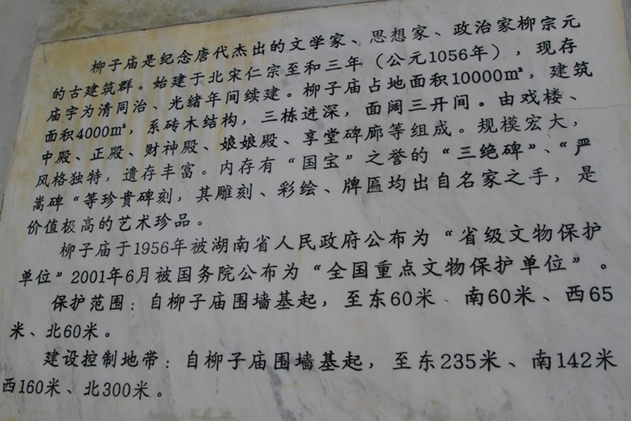 柳子庙是纪念唐代杰出的文学家、思想家、政治家柳宗元
的古建筑群。始建于北宋仁宗至和三年（公元1056年），现存
庙宇为清同治、光緒年间续建。柳子庙占地面积10000㎡，建筑
面积4000㎡，系砖木结构，三栋进深，面阔三开间。由戏楼、
中殿、正殿、财神殿、娘娘殿、享堂碑廊等组成。规模宏大，
风格独特，遗存丰富。内存有“国宝”之誉的“三绝碑”、“严
嵩碑“等珍贵碑刻，其雕刻、彩绘、牌匾均出自名家之手，是
价值极高的艺术珍品。
柳子庙于1956年被湖南省人民政府公布为“省级文物保护
单位”2001年6月被国务院公布为“全国重点文物保护单位”。
保护范围：自柳子庙围墙基起，至东60米、南60米、西65
米、北60米。
建设控制地带：自柳子庙围墙基起，至东235米、南142米
西160米、北300米。